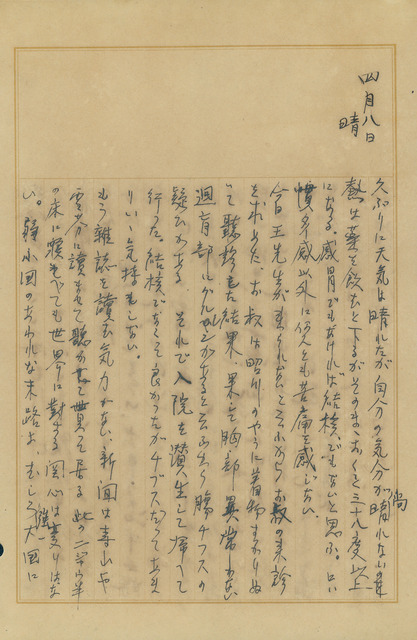 四月八日
晴
久ぶりに天気は晴れたが自分の気分が晴れない。
熱は薬を飲むと下るがそのまゝおくと三十九度以上
になる。感冒でもなければ結核でもないと思ふ。只
慣多感以外に何んとも苦痛を感じない。
今日王先生が来られないと云ふから
を求めた。お叔は昭川のやうに着物まねぬ
いで聽診した結果、果して胸部異常がない
週盲部にグルグルがあると云ふから腸チフスの
疑ひがある。それで入院を讃生して帰って
行った。結核でなくて良かったがチブスだってあま
りいゝ気持もしない。
もう雑誌を讀む気力がない。新聞は春山や
雲芬に讀ませて聽かせて貰って居る。此の二ケ年半
の床に寝てゐても世界に對する関心は変りはな
い。弱小国のあはれな末路よ、むしろ大国に